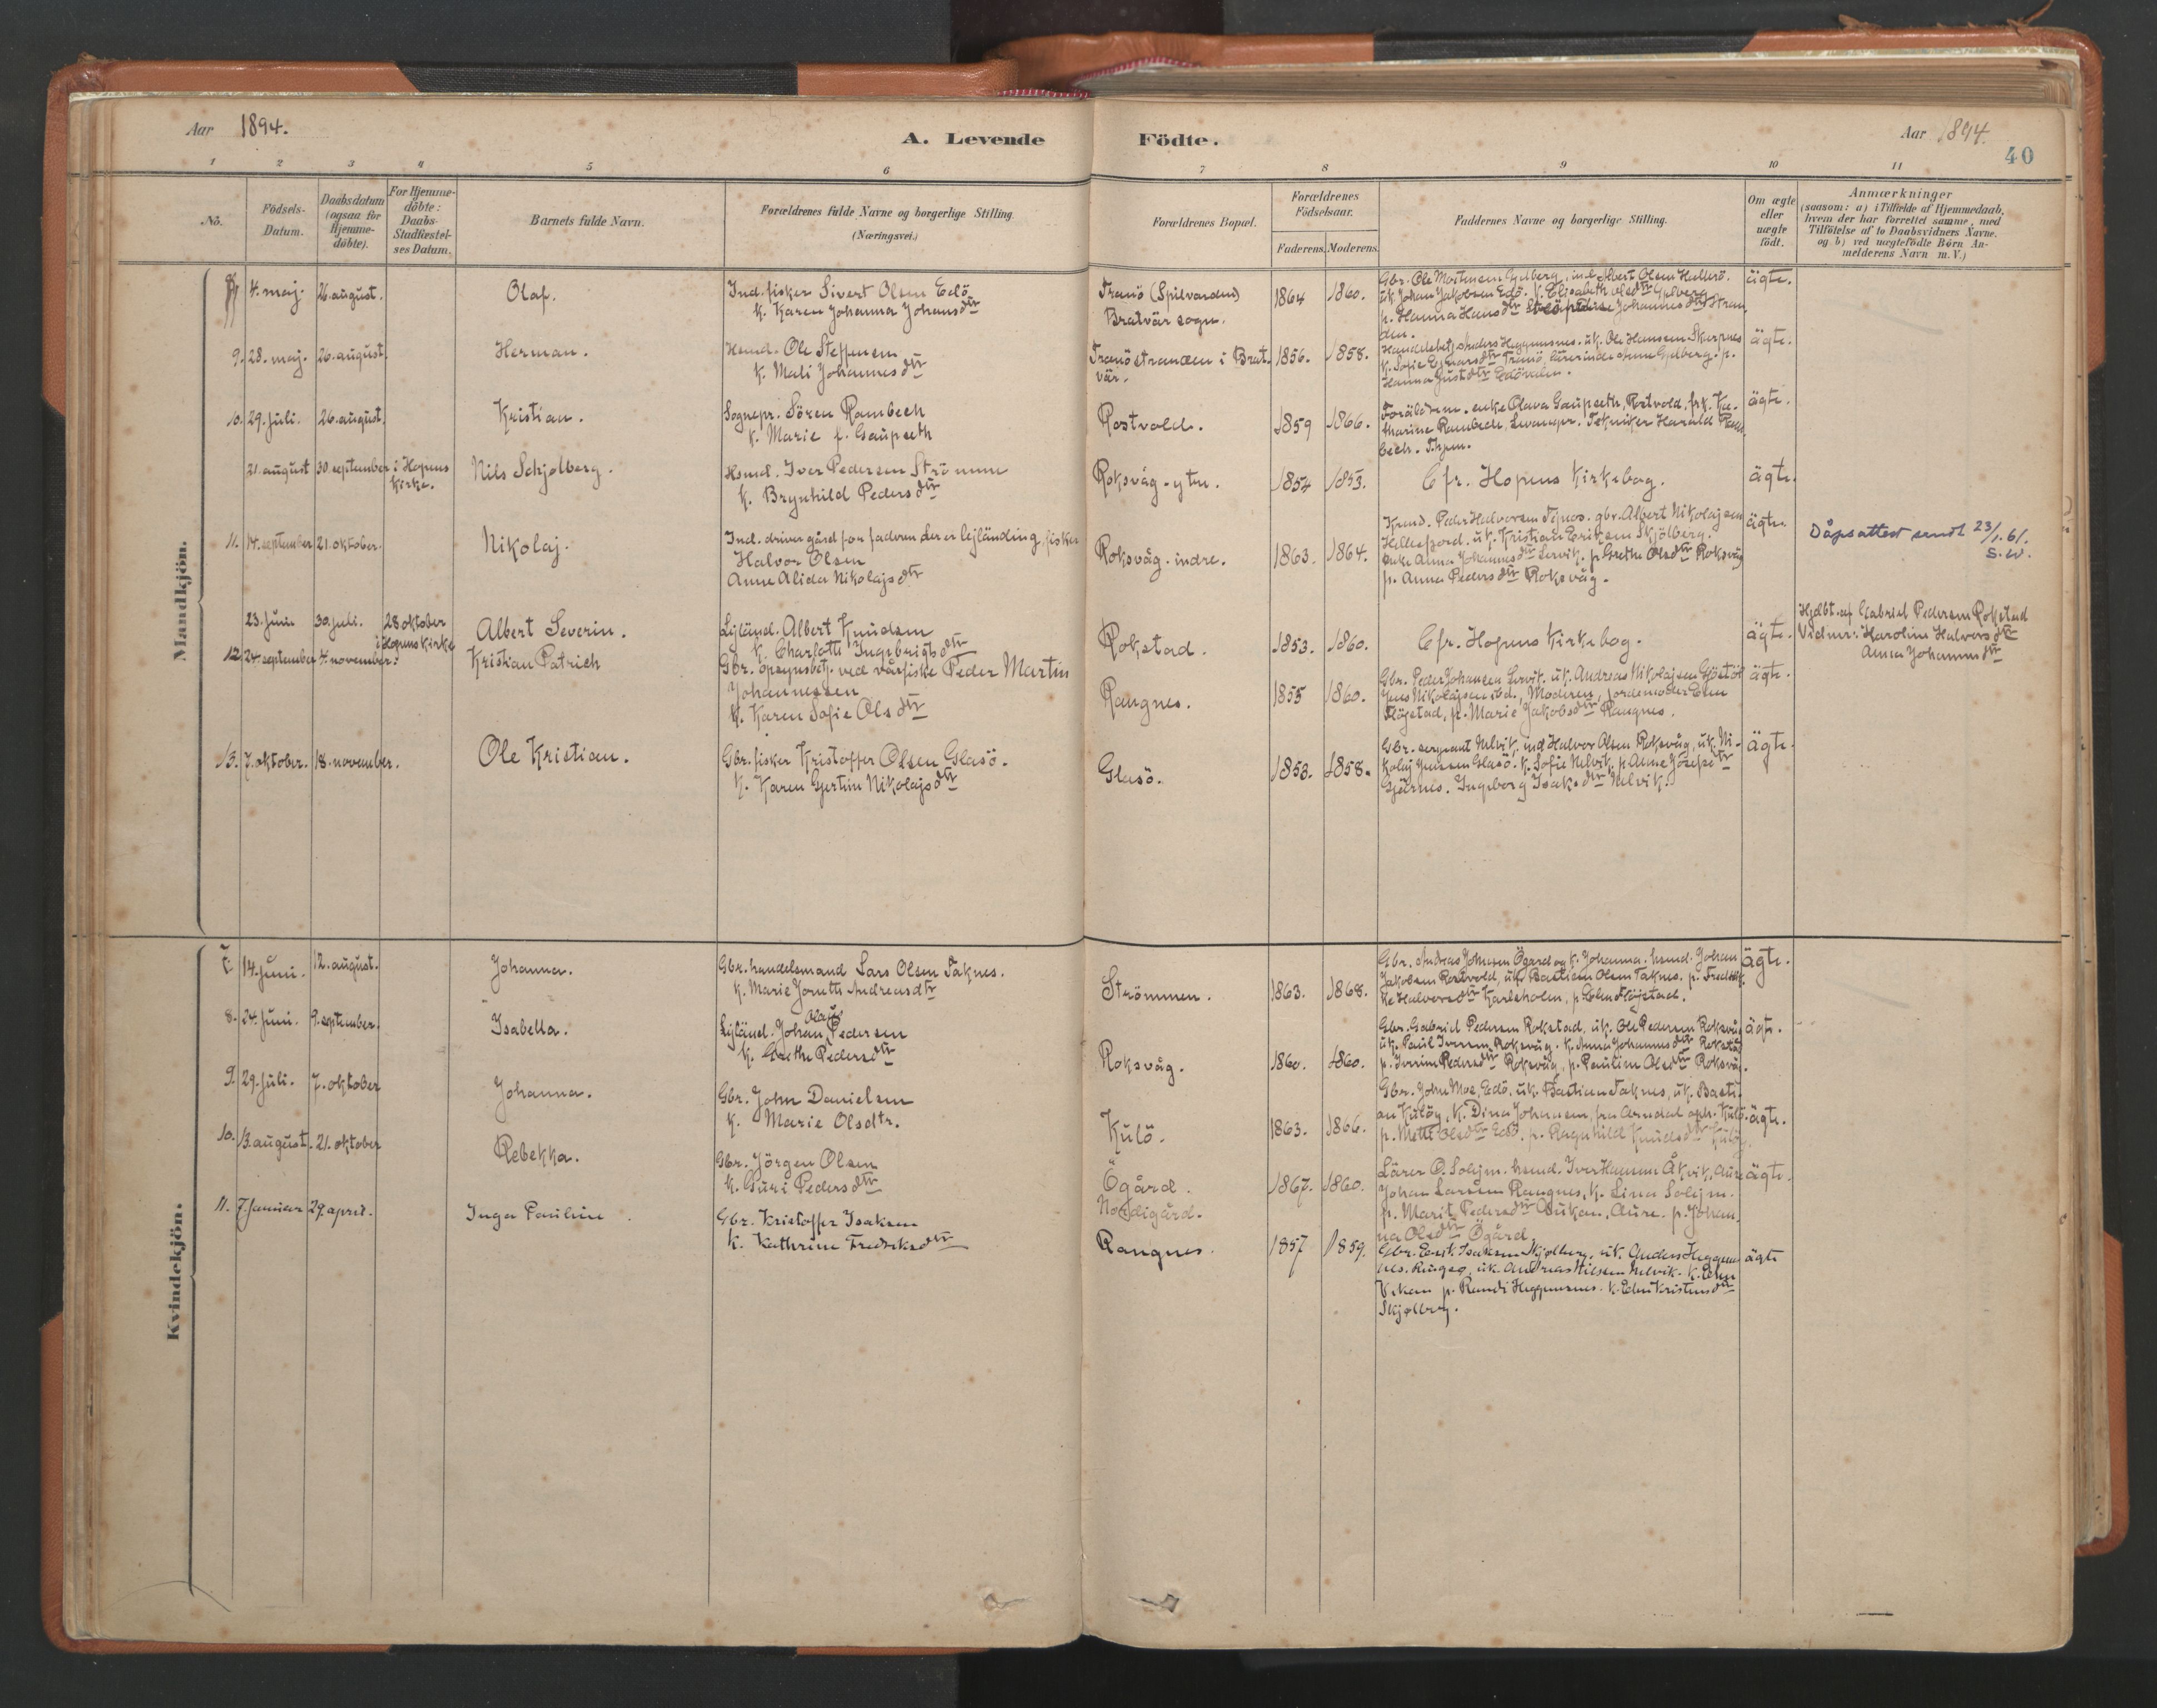 Aar 1894.
A. Levende Födte.
Aar 1894.
40
1 2 3 4 5 6 7 8 9 10 11
No.
Födsels-
Datum.
Daabsdatum
(ogsaa for
Hjemme-
döbte).
For Hjemme-
döbte:
Daabs-
Stadfæstel-
ses Datum.
Barnets fulde Navn.
Forældrenes fulde Navne og borgerlige Stilling.
(Næringsvei.)
Forældrenes Bopæl.
Forældrenes
Födselsaar.
Faderens. Moderens.
Faddernes Navne og borgerlige Stilling.
Om ægte
eller
uægte
födt.
Anmærkninger
(saasom: a) i Tilfælde af Hjemmedaab,
hvem der har forrettet samme, med
Tilföielse af to Daabsvidners Navne.
og b) ved uægtefödte Börn An-
melderens Navn m. V.)
Mandkjön.
4. maj. 26. august.
Olaf.
Ind. fisker Sivert Olsen Edö
k. Karen Johanna Johansdtr
Tranö (Spilvarden)
Bratvär sogn.
1864 1860.
Gbr. Ole Mortensen Gjelberg, ind. Albert Olsen
uk. Johan Jakobsen Edö. k. Elisabeth Olsdtr Gjelberg
p. Hanna Hansdtr Johannesdtr Stran
den.
ägte.
9. 28. maj. 26. august
Herman.
Hsmd. Ole Steffensen
k. Mali Johannesdtr
Tranöstranden i Brat
vär.
1856. 1858.
Anders Heggemsnes. uk. Ole Hansen Skarpnes
k. Sofie Tranö, lärerinde Anne Gjelberg. p.
Hanna
ägte.
10. 29. juli. 26. august.
Kristian.
Sognepr. Sören Rambech
k. Marie f. Gaupseth
Rostvold.
1859 1866.
Foräldrene. enke Olava Gaupseth, Rostvold, frk. Ka-
tharine Rambech, Levanger. Tekniker Harald Ram
bech. Thjem.
ägte.
21. august 30. september i Hopens
Kirke.
Nils Schjölberg.
Hsmd. Iver Pedersen Strömme
k. Brynhild Pedersdtr
Roksvåg - ytre.
1854 1853.
Cfr. Hopens Kirkebog.
ägte.
11. 14. september 21. oktober.
Nikolaj.
Ind. driver gård for faderen der er lejländing, fisker
Halvor Olsen
Anne Alida Nikolajsdtr
Roksvåg - indre.
1863. 1864.
Peder Halvorsen gbr. Albert Nikolajsen
uk. Kristian Eriksen Skjölberg.
enke Anna Johannesdtr Lervik. p. Grethe Olsdtr Roksvåg
p. Anna Pedersdtr Roksvåg.
ägte.
Dåpsattest sendt 23/1.61.
S.W.
23. juni 30. juli. 28 oktober
i Hopens Kirke
Albert Severin.
Lejländ. Albert Knudsen
k. Charlotte Ingebrigtsdtr
Rokstad.
1853. 1860.
Cfr. Hopens Kirkebog.
ägte.
Hjdbt. af Gabriel Pedersen Rokstad
Vidner: Karoline Halvorsdtr
Anna Johannesdtr
12. 24. september 4. november.
Kristian Patrick
Gbr. opsynsbetj. ved vårfiske Peder Martin
Johannessen
k. Karen Sofie Olsdtr
Rangnes.
1855 1860.
Gbr. Peder Johansen Lervik. uk. Andreas Nikolajsen
Jens Nikolajsen ibd., Moderen, Jordemoder Elen
Flöjstad, p. Marie Jakobsdtr Rangnes.
ägte.
13. 7. oktober. 18. november.
Ole Kristian.
Gbr. fisker Kristoffer Olsen Glasö.
k. Karen Gjertine Nikolajsdtr
Glasö.
1853. 1858.
Gbr. sergeant Nelvik, ind Halvor Olsen Roksvåg, uk. Ni-
kolaj Jensen Glasö. k. Sofie Nelvik p. Anne
Ingeborg Isaksdtr Nelvik.
ägte.
Kvindekjön.
7. 14. juni. 12. august.
Johanna.
Gbr. handelsmand Lars Olsen Taknes.
k. Marie Joruth Andreasdtr
Strömmen.
1863. 1868.
Gbr. Andreas Johnsen Ögard og k. Johanna. hsmd. Johan
Jakobsen Rostvold, uk. Bastian Olsen Taknes. p. Fredrik-
ke Halvorsdtr Karlsholm, p. Elen Flöjstad.
ägte.
8. 24. juni. 9. september.
Isabella.
Lejländ. Johan Olaus Pedersen
k. Grethe Pedersdtr
Roksvåg.
1860. 1860.
Gbr. Gabriel Pedersen Rokstad, uk. Ole Pedersen Roksvåg
uk. Paul Iversen Roksvåg. k. Anna Johannesdtr Rokstad
p. Iverine Pedersdtr Roksvåg, p. Pauline Olsdtr Roksvåg.
ägte.
9. 29. juli. 7. oktober
Johanna.
Gbr. John Danielsen
k. Marie Olsdtr.
Kulö.
1863. 1866.
Gbr. John Moe, Edö, uk. Bastian Taknes, uk. Basti-
an Kulöy, k. Dina Johansen, fra Arendal oph. Kulö
p. Mette Olsdtr Edö, p. Ragnhild Knudsdtr Kulöy.
ägte.
10. 13. august. 21. oktober
Rebekka.
Gbr. Jörgen Olsen
k. Guri Pedersdtr
Ögård.
Nordigård.
1867. 1860.
Lärer O. Solejm. hsmd. Iver Hansen Åkvik, Aure
Johan Larsen Rangnes, k. Lina Solejm.
p. Marit Pedersdtr Aure. p. Johan-
na Olsdtr Ögård.
ägte.
11. 7. januar 29. april.
Inga Pauline.
Gbr. Kristoffer Isaksen
k. Kathrine Fredriksdtr
Rangnes.
1857 1859.
Gbr. Erik Isaksen Skjölberg. uk. Anders Heggem
nes. uk. Andreas Nilsen Nelvik. k. Elen
Vikan p. Randi Heggemsnes. k. Elen Kristensdtr
Skjølberg.
ägte